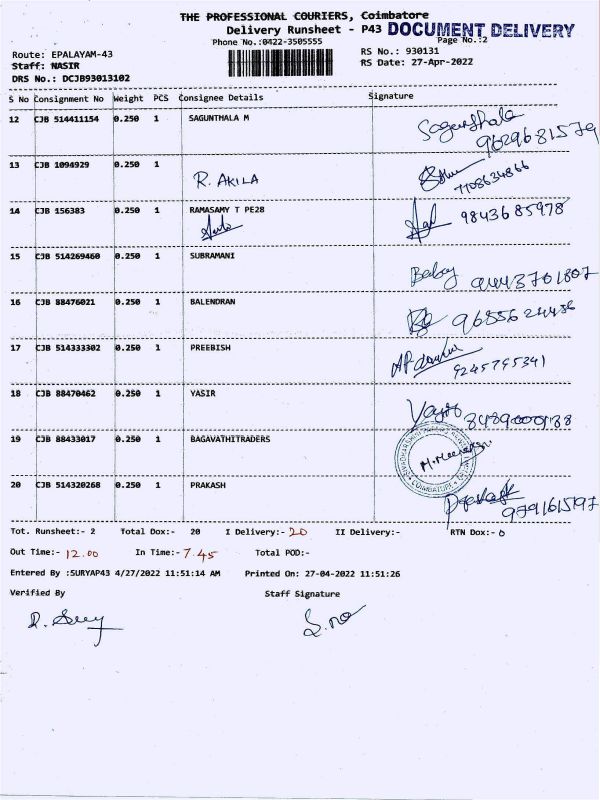 THE PROFESSIONAL COURIERS, Coimbatore
Delivery Runsheet - P43 DOCUMENT DELIVERY
Phone No.:0422-3505555 Page No.:2
Route: EPALAYAM-43 RS No.: 930131
Staff: NASIR RS Date: 27-Apr-2022
DRS No.: DCJB93013102
S No Consignment No Weight PCS Consignee Details Signature
12 CJB 514411154 0.250 1 SAGUNTHALA M Sagunthala
9629681579
13 CJB 1094929 0.250 1
R. AKILA 7708634866
14 CJB 156383 0.250 1 RAMASAMY T PE28 9843685978
15 CJB 514269460 0.250 1 SUBRAMANI
Baboy 9443701807
16 CJB 88476021 0.250 1 BALENDRAN
17 CJB 514333302 0.250 1 PREEBISH
9245795341
18 CJB 88470462 0.250 1 YASIR
19 CJB 88433017 0.250 1 BAGAVATHITRADERS
COIMBATORE
20 CJB 514320268 0.250 1 PRAKASH Prakash
9791615197
Tot. Runsheet:- 2 Total Dox:- 20 I Delivery:- 20 II Delivery:- RTN Dox:- 0
Out Time:- 12.00 In Time:- 7.45 Total POD:-
Entered By :SURYAP43 4/27/2022 11:51:14 AM Printed On: 27-04-2022 11:51:26
Verified By Staff Signature